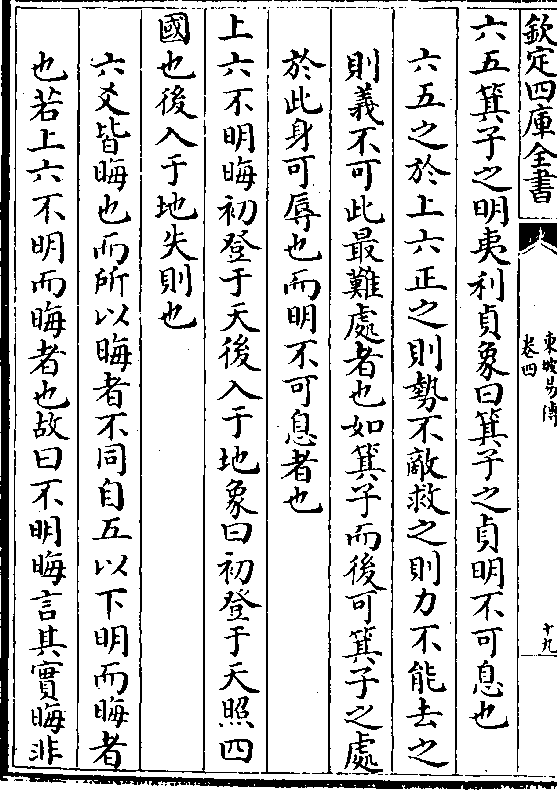 欽定四庫全書
東坡易傳
卷四
十九
六五箕子之明夷利貞象曰箕子之貞明不可息也
六五之於上六正之則勢不敵救之則力不能去之
則義不可此最難處者也如箕子而後可箕子之處
於此身可辱也而明不可息者也
上六不明晦初登于天後入于地象曰初登于天照四
國也後入于地失則也
六爻皆晦也而所以晦者不同自五以下明而晦者
也若上六不明而晦者也故曰不明晦言其實晦非